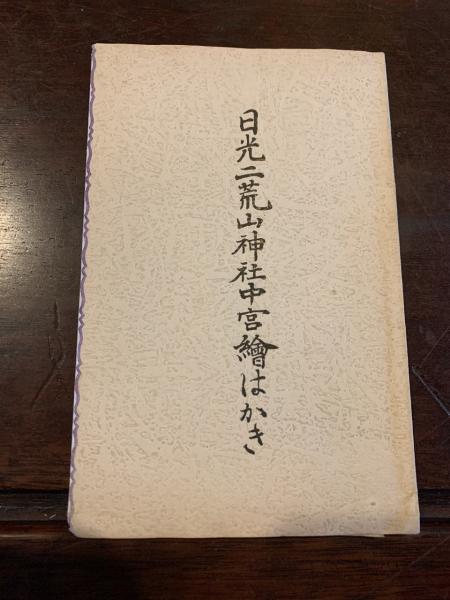 日光二荒山神社中宮繪はかき